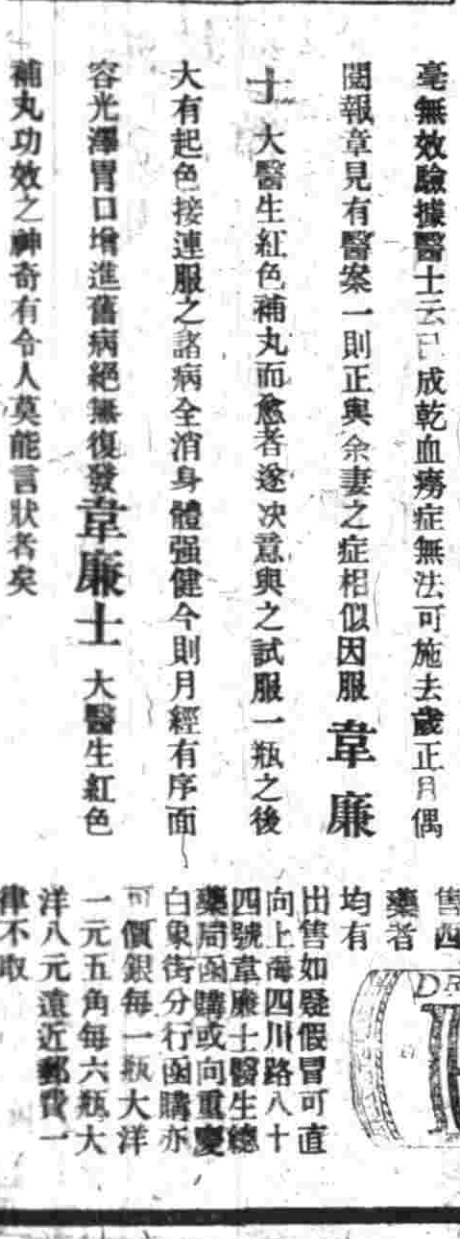 毫無效驗據醫士云已成乾血癆症無法可施去歲正月偶
閱報章見有醫案一則正與余妻之症相似因服 韋廉
士 大醫生紅色補丸而愈者遂决意與之試服一瓶之後
大有起色接連服之諸病全消身體强健今則月經有序面
容光澤胃口增進舊病絕無復發韋廉士 大醫生紅色
補丸功效之神奇有令人莫能言狀者矣
售西
藥者
均有
出售如疑假冒可直
向上海四川路八十
四號韋廉士醫生總
藥局函購或向重慶
白象街分行函購亦
可價銀每一瓶大洋
一元五角每六瓶大
洋八元遠近郵費一
律不取
DR